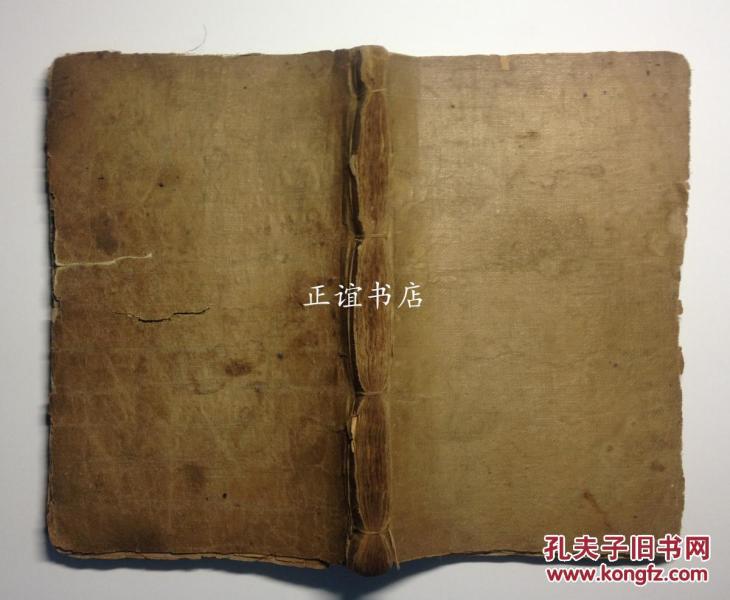 正谊书店
孔夫子旧书网
www.kongfz.com